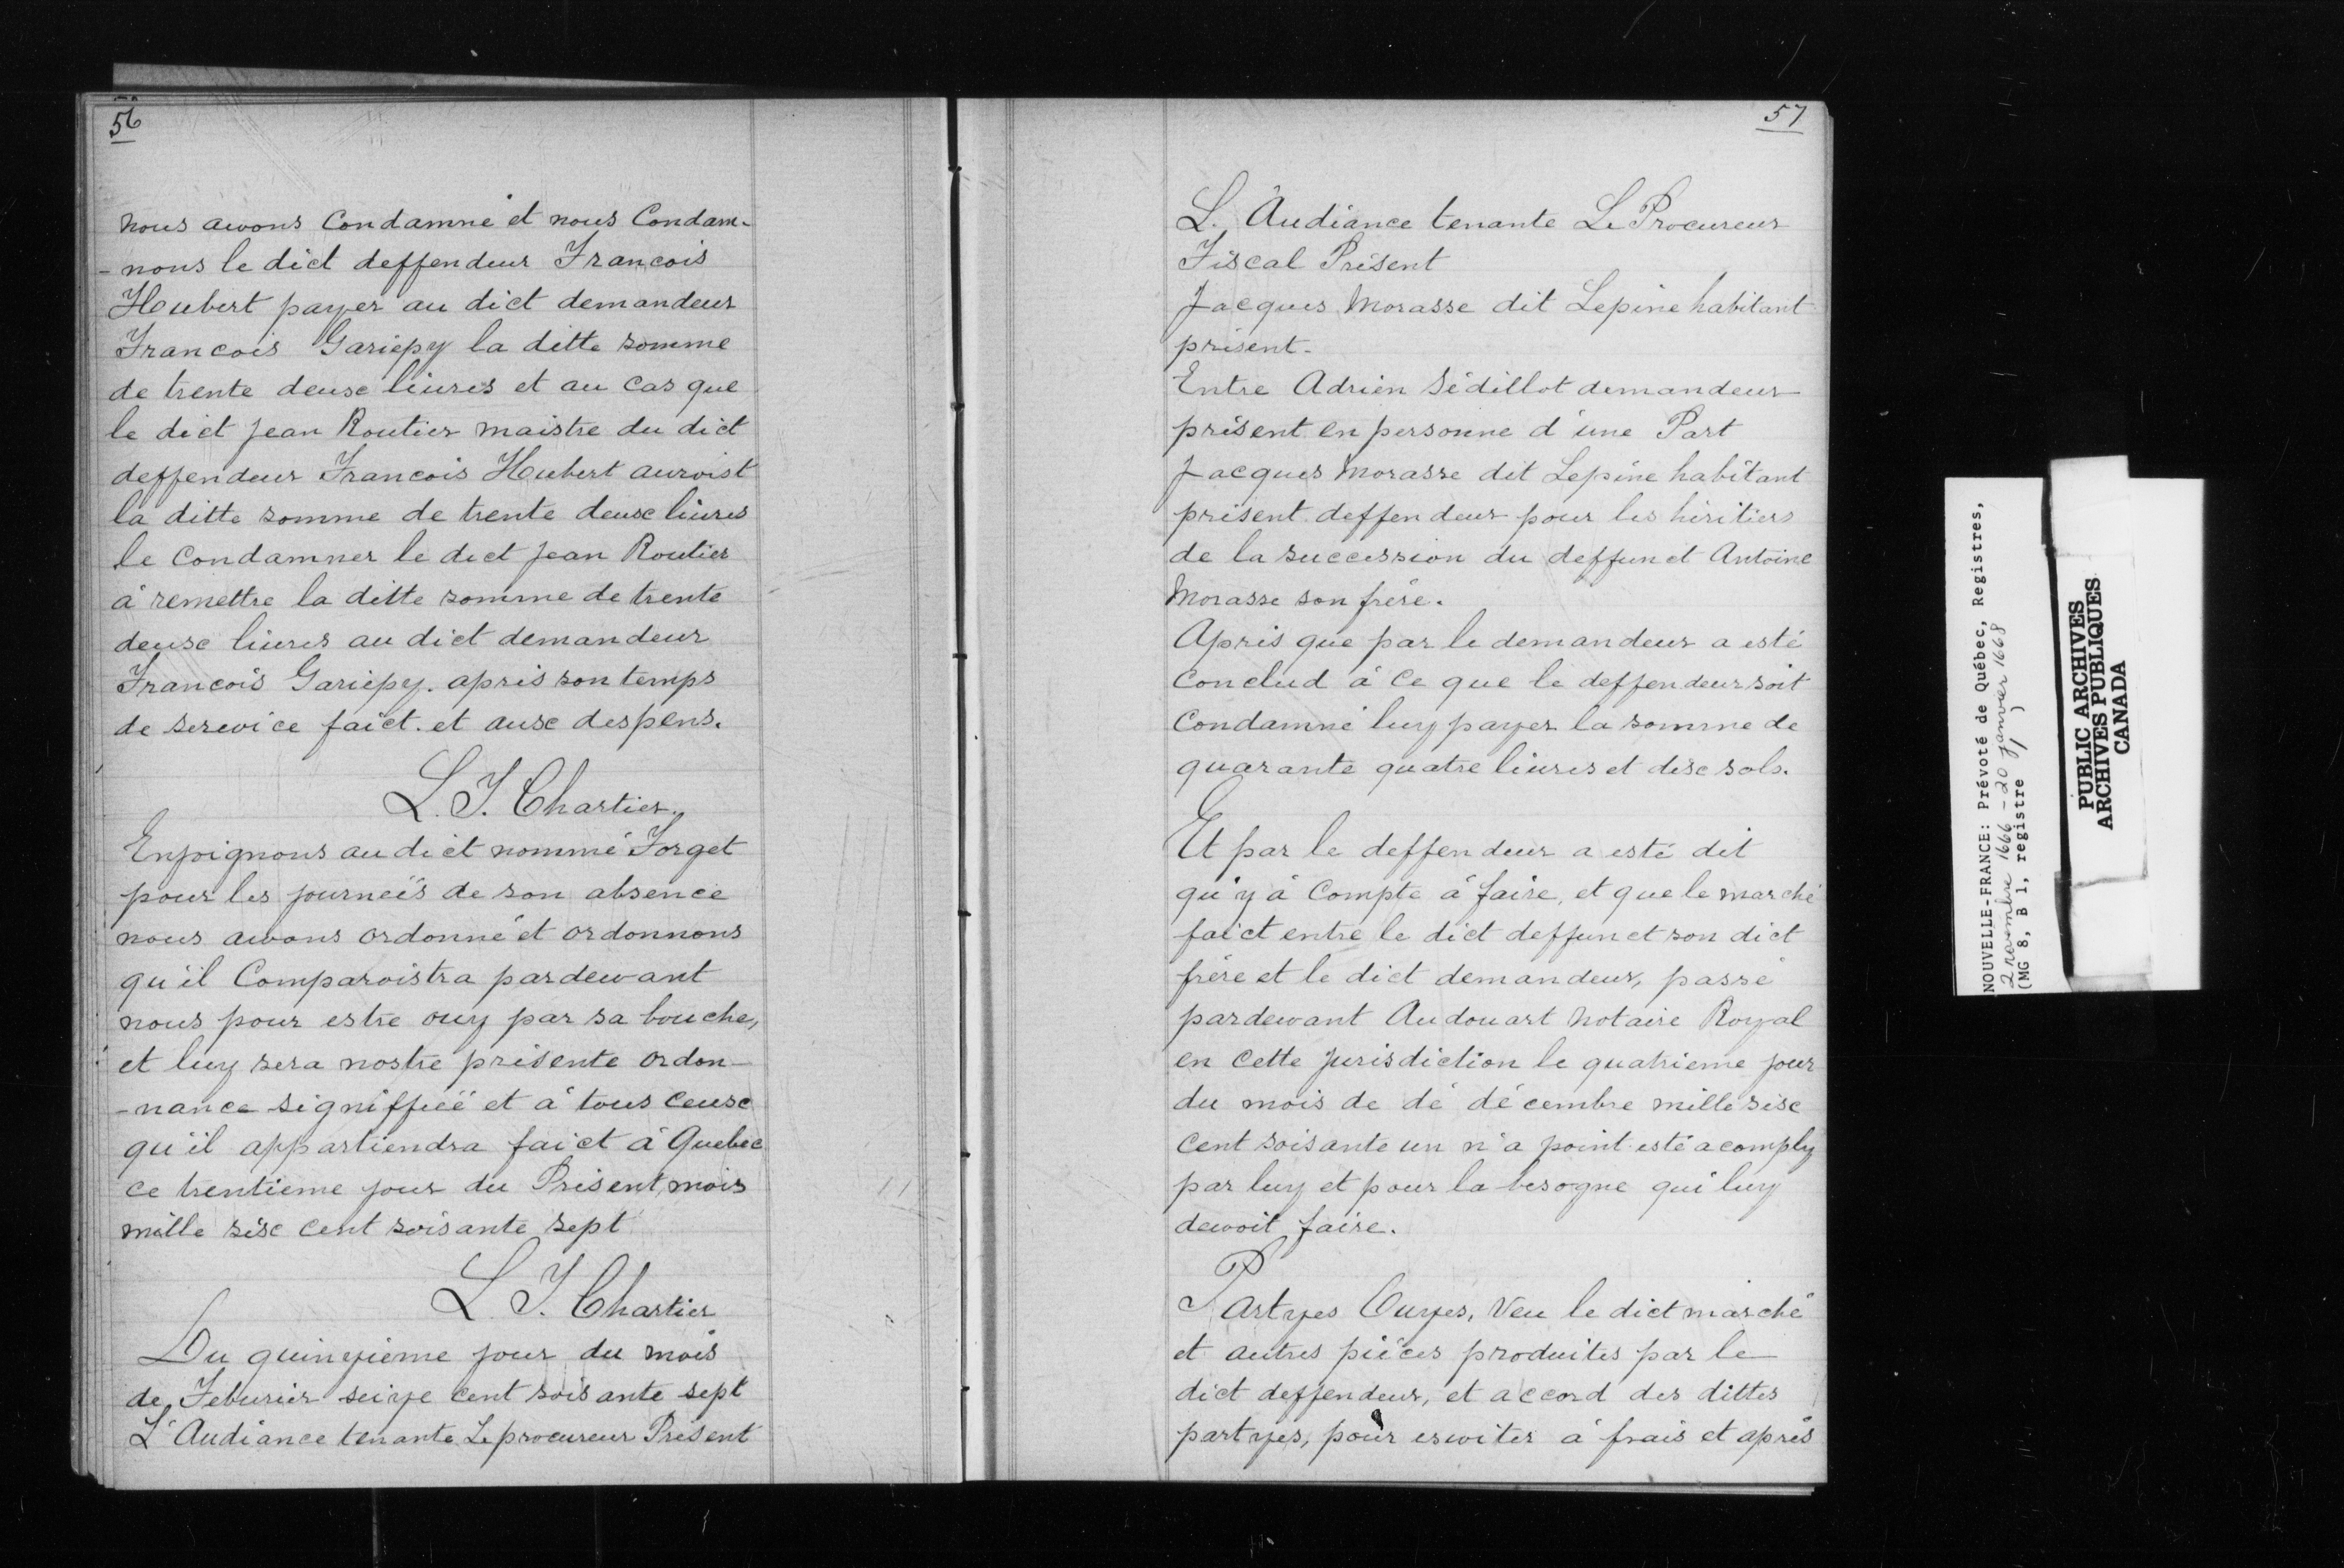 56
nous avons Condamné et nous Condam-
-nous le dict deffendeur Francois
Houbert payer au dict demandeur
Francois Gariépy la ditte somme
de trente deuse liures et au Cas que
le dict Jean Routier maistre du dict
deffendeur Francois Hubert auroist
la ditte somme de trente deuse liures
le Condamner le dict Jean Routier
à remettre la ditte somme de trente
deuse liures au dict demandeur
Francois Gariépy. après son temps
de serevice faict. et ause despens.
L. T. Chartier.
Enjoignons au dict nommé Forget
pour les journeés de son absence
nous avons ordonné et ordonnons
qu'il Comparoistra pardevant
nous pour estre ouy par sa bouche,
et luy sera nostre présente ordon-
-nance signiffieé et à tous ceuse
qu'il appartiendra faict à Quebec
ce trentieme jour du Présent mois
mille sise cent soisante sept
L. T. Chartier
Du quinzième jour du mois
de Feburier seize cent soisante sept
L'Audiance tenante Le procureur Présent
57
L'Audiance tenante Le Procureur
Fiscal Présent
Jacques Morasse dit Lepine habitant
présent.
Entre Adrien Sédillot demandeur
présent en personne d'une Part
Jacques Morasse dit Lepine habitant
présent deffendeur pour les héritiers
de la succession du deffunct Antoine
Morasse son frére.
Après que par le demandeur a esté
Conclud à Ce que le deffendeur soit
Condamné luy payer la somme de
quarante quatre liures et dise sols.
Et par le deffendeur a esté dit
qu'y à Compte à faire, et que le marché
faict entre le dict deffunct son dict
frére et le dict demandeur, passé
pardevant Audouart Notaire Royal
en Cette Jurisdiction le quatrieme jour
du mois de dé décembre mille sise
cent soisante un n'a point esté acomply
par luy et pour la besogne qui luy
devoit faire.
Partyes Ouyes, Veu le dict marché
et autres piéces produites par le
dict deffendeur, et accord des dittes
partyes, pour esviter à frais et après
NOUVELLE-FRANCE: Prévoté de Québec, Registres,
2 novembre 1666 - 20 janvier 1668
(MG 8, B 1, registre 1)
PUBLIC ARCHIVES
ARCHIVES PUBLIQUES
CANADA